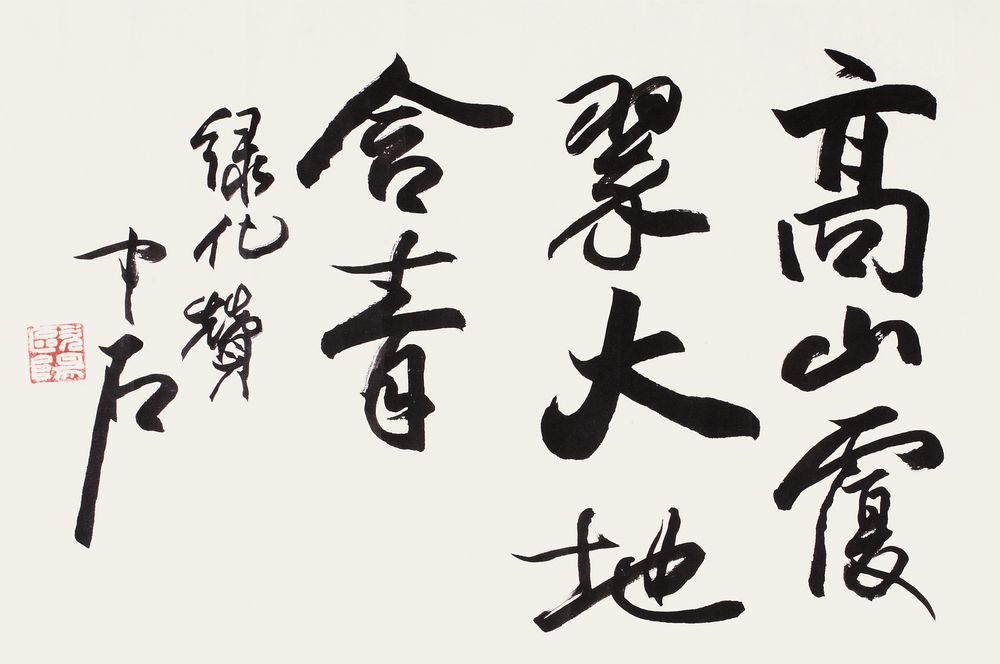 高山覆
翠大地
含青
绿化赞
中石